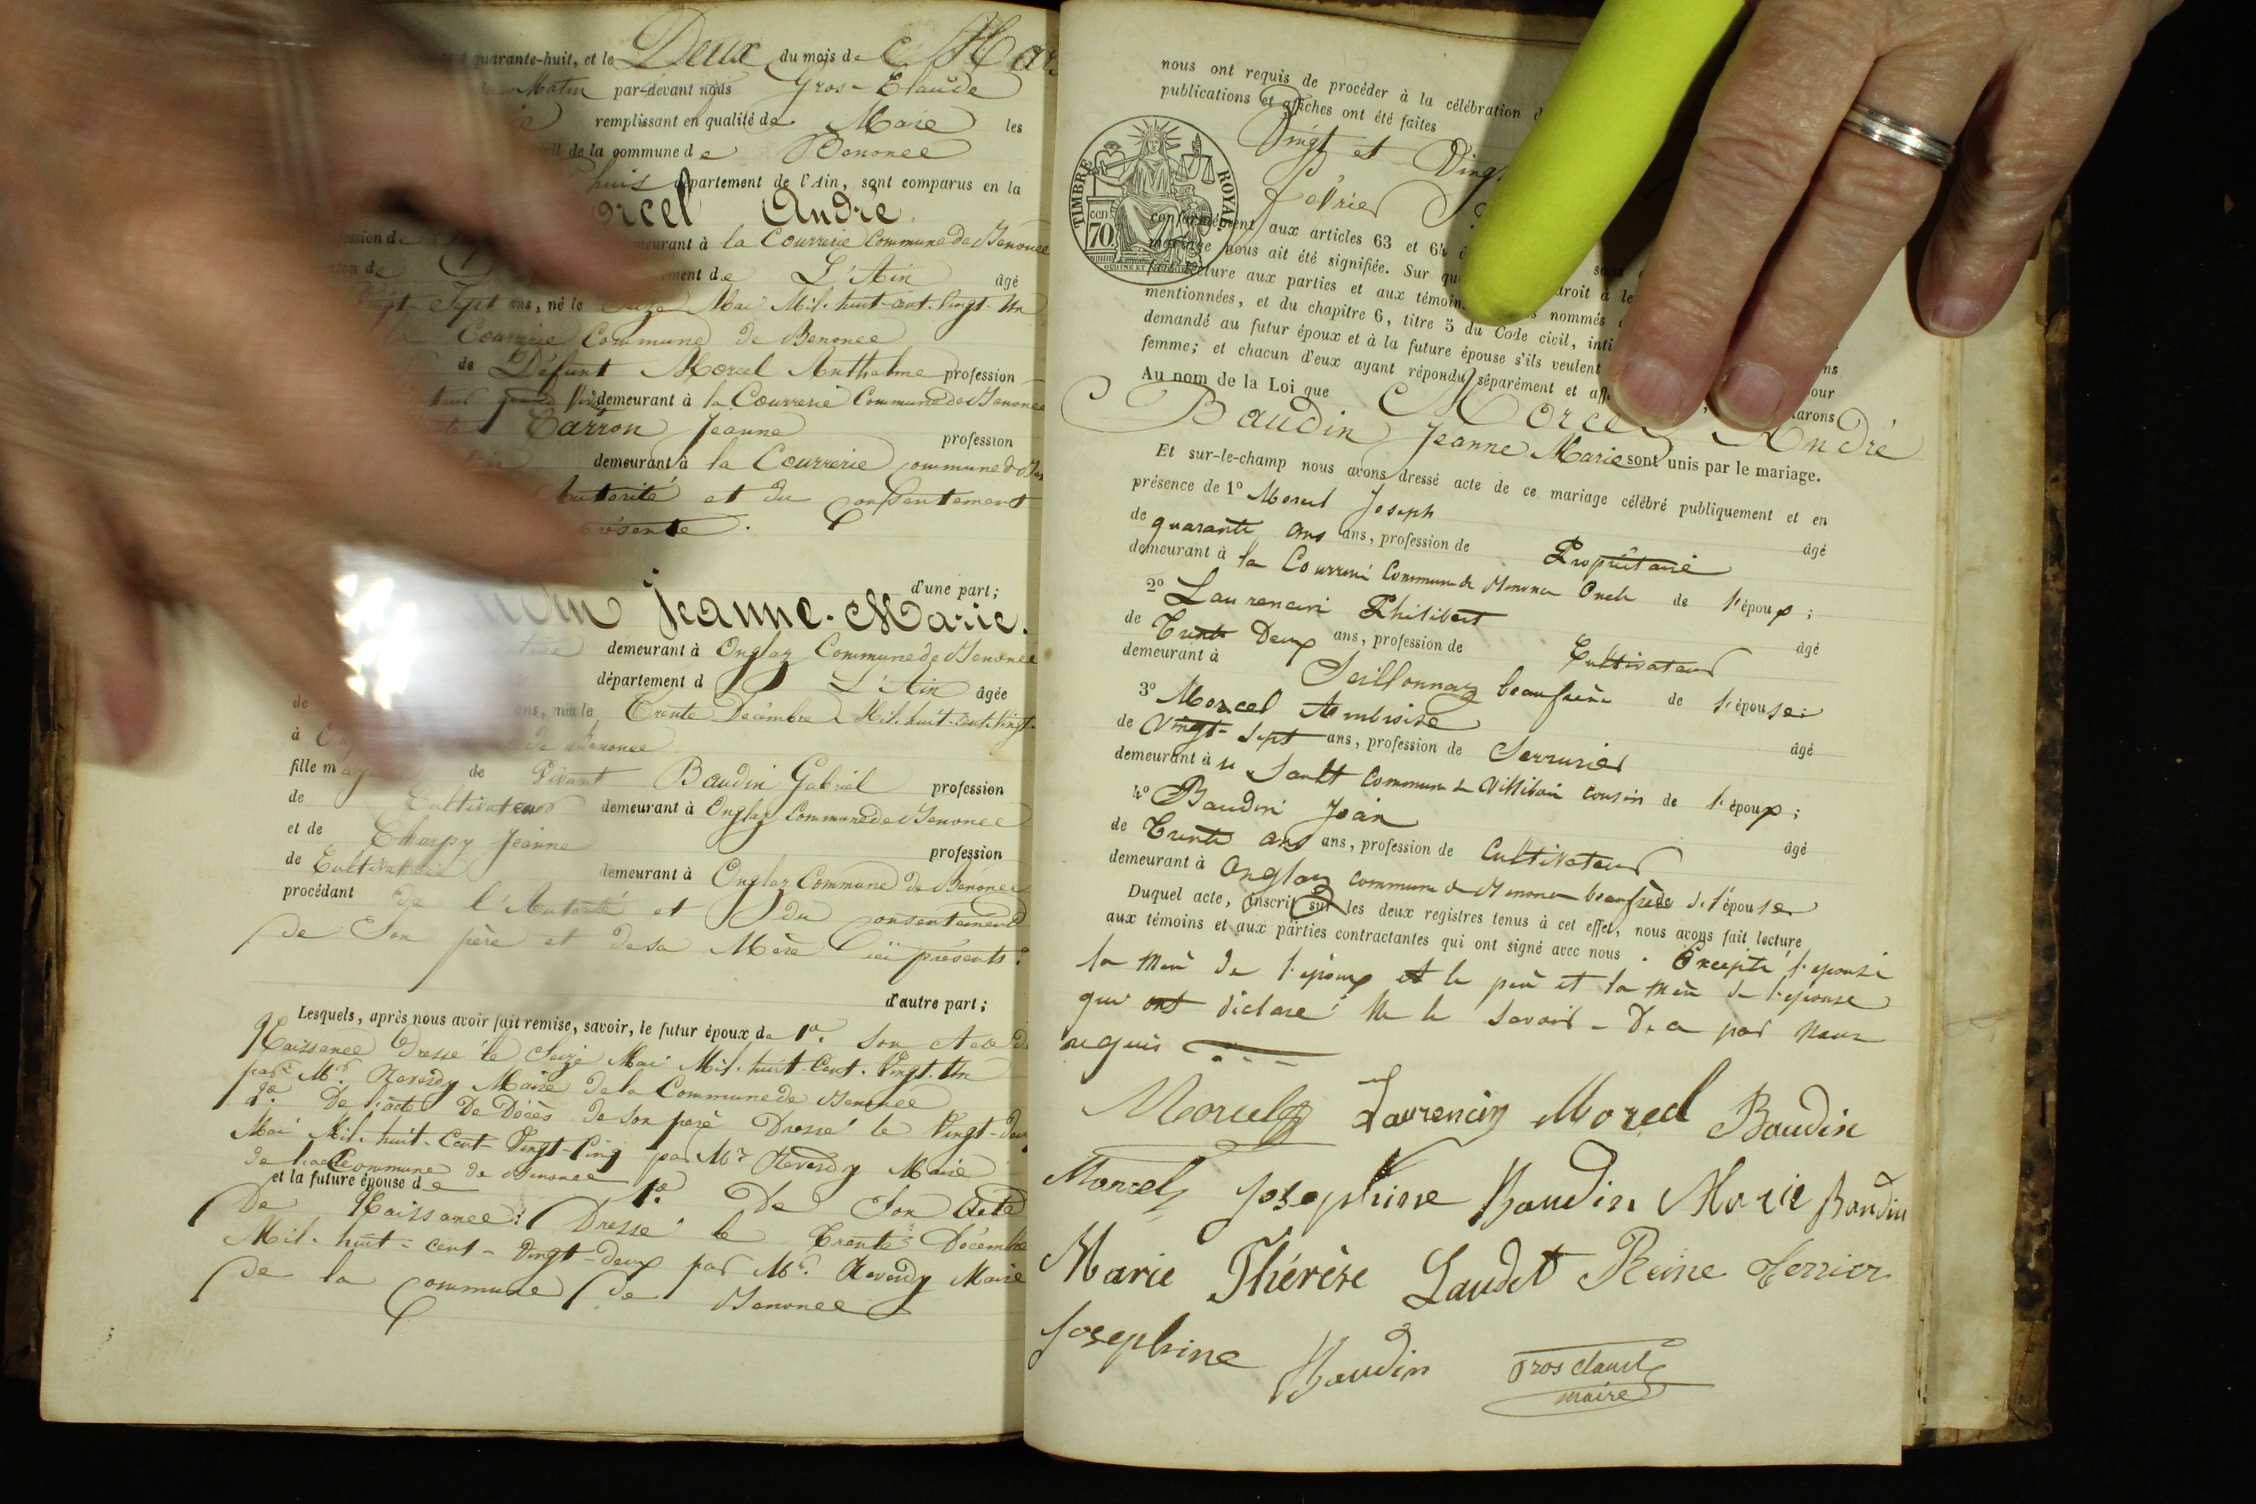 quarante-huit, et le Deux du mois de Mar
Matin par-devant nous Gros-Claude
remplissant en qualité de Maire les
de la commune de Benonce
département de l'Ain, sont comparus en la
orcel André.
demeurant à la Courrerie Commune de Benonce
L'Ain âgé
Vingt-Sept ans, né le Seize Mai Mil-huit-cent-Vingt-Un
Courrerie Commune de Benonce
de Défunt Morcel Anthelme profession
demeurant à la Courrerie Commune de Benonce
Carron Jeanne profession
demeurant à la Courrerie commune de
autorité et du consentement
présente.
d'une part;
Jeanne-Marie.
demeurant à Onglaz Commune de Benonce
département d L'Ain âgée
de ans, née le Trente Décembre Mil-huit-cent-vingt-
à de Benonce
fille de Vivant Baudin Gabriel profession
de Cultivateur demeurant à Onglaz Commune de Benonce
et de Charpy Jeanne profession
de Cultivatrice demeurant à Onglaz Commune de Benonce
procédant de l'Autorité et du consentement
de Son père et de sa Mère ici présents.
d'autre part;
Lesquels, après nous avoir fait remise, savoir, le futur époux de 1°. Son Acte de
Naissance Dressé le Seize Mai Mil-huit-Cent-Vingt-Un
par Mr. Reverdy Maire de la Commune de Benonce
2°. De l'acte De Décès de Son père Dressé le Vingt-deux
Mai Mil-huit-Cent-Vingt-Cinq par Mr Reverdy Maire
de la Commune de Benonce
et la future épouse de 1°. De Son Acte
De Naissance Dressé le Trente Décembre
Mil-huit-cent-Vingt-deux par Mr. Reverdy Maire
de la commune de Benonce
nous ont requis de procéder à la célébration d
publications et affiches ont été faites
Vingt et Vingt
février
TIMBRE ROYAL
cen 70
conformément aux articles 63 et 64
mariage nous ait été signifiée. Sur
lecture aux parties et aux témoins nommés
mentionnées, et du chapitre 6, titre 5 du Code civil, inti
demandé au futur époux et à la future épouse s'ils veulent
femme; et chacun d'eux ayant répondu séparément et aff
Au nom de la Loi que Morcel André
Baudin Jeanne Marie sont unis par le mariage.
Et sur-le-champ nous avons dressé acte de ce mariage célébré publiquement et en
présence de 1° Morcel Joseph âgé
de quarante ans ans, profession de Propriétaire
demeurant à la Courrerie Commune de Benonce Oncle de l'époux;
2° Laurencin Philibert âgé
de Trente Deux ans, profession de Cultivateur
demeurant à Seillonnaz beaufrère de l'épouse;
3° Morcel Ambroise âgé
de Vingt-Sept ans, profession de Serrurier
demeurant à Sault Commune de Villebois cousin de l'époux;
4° Baudin Jean âgé
de Trente ans ans, profession de Cultivateur
demeurant à Onglaz commune de Benonce beaufrère de l'épouse
Duquel acte, inscrit sur les deux registres tenus à cet effet, nous avons fait lecture
aux témoins et aux parties contractantes qui ont signé avec nous. Excepté l'épouse
la mère de l'époux et le père et la mère de l'épouse
qui ont déclaré ne le savoir - De ce par nous
requis
Morcel Laurencin Morcel Baudin
Morcel Josephine Baudin Marie Baudin
Marie Thérèse Laudet Reine Terrier
Josephine Baudin Gros Claude
maire